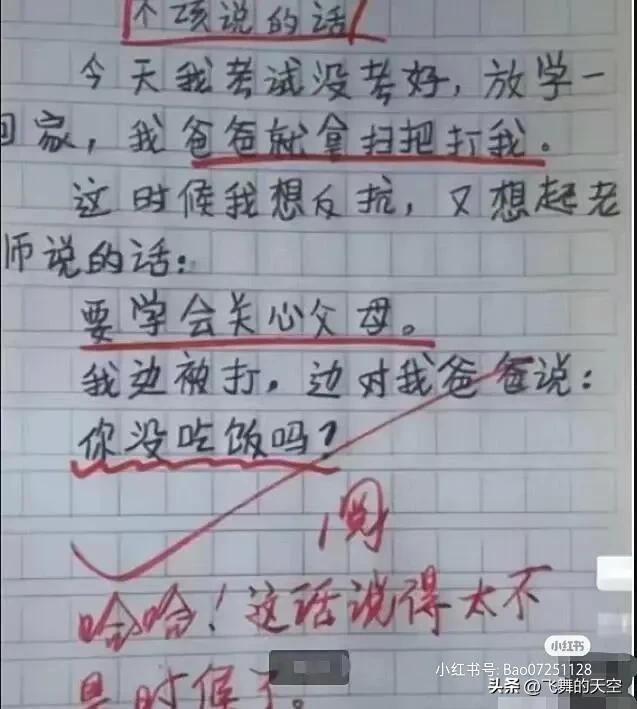 不该说的话
今天我考试没考好，放学一
回家，我爸爸就拿扫把打我。
这时候我想反抗，又想起老
师说的话：
要学会关心父母。
我边被打，边对我爸爸说：
你没吃饭吗？
阅
哈哈！这话说得太不
是时候了。
小红书
小红书号: Bao07251128
头条 @飞舞的天空